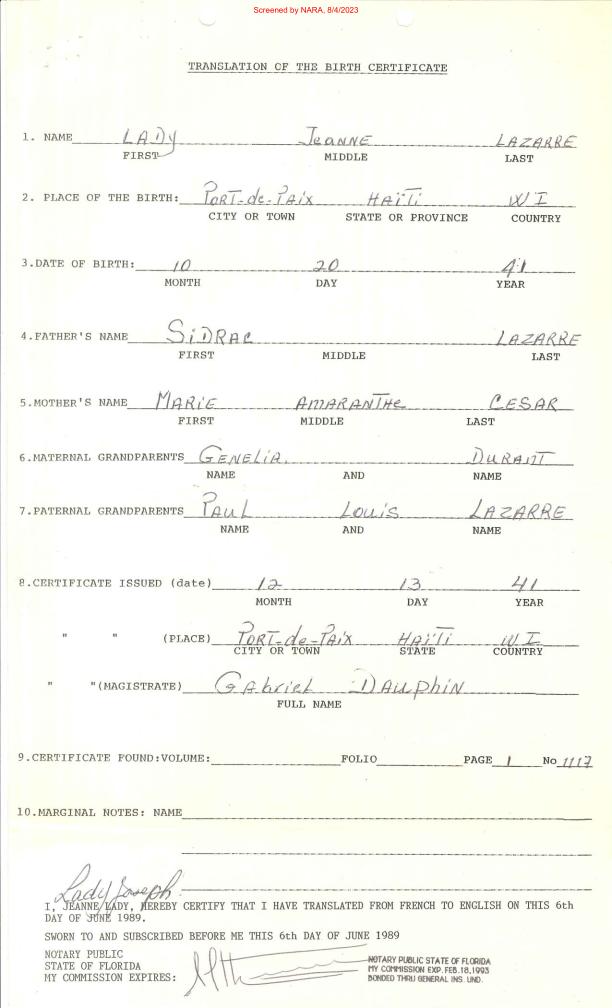 Screened by NARA, 8/4/2023
TRANSLATION OF THE BIRTH CERTIFICATE
1. NAME LADY JEANNE LAZARRE
FIRST MIDDLE LAST
2. PLACE OF THE BIRTH: PORT-de-PAIX HAITI WI
CITY OR TOWN STATE OR PROVINCE COUNTRY
3.DATE OF BIRTH: 10 20 41
MONTH DAY YEAR
4.FATHER'S NAME SIDRAC LAZARRE
FIRST MIDDLE LAST
5.MOTHER'S NAME MARIE AMARANTHE CESAR
FIRST MIDDLE LAST
6.MATERNAL GRANDPARENTS GENELIA. DURANT
NAME AND NAME
7.PATERNAL GRANDPARENTS PAUL LOUIS LAZARRE
NAME AND NAME
8.CERTIFICATE ISSUED (date) 12 13 41
MONTH DAY YEAR
" " (PLACE) PORT-de-PAIX HAITI WI
CITY OR TOWN STATE COUNTRY
" "(MAGISTRATE) GAbriel DAUphiN
FULL NAME
9.CERTIFICATE FOUND:VOLUME: FOLIO PAGE 1 No 1117
10.MARGINAL NOTES: NAME
Lady Joseph
I, JEANNE/LADY, HEREBY CERTIFY THAT I HAVE TRANSLATED FROM FRENCH TO ENGLISH ON THIS 6th
DAY OF JUNE 1989.
SWORN TO AND SUBSCRIBED BEFORE ME THIS 6th DAY OF JUNE 1989
NOTARY PUBLIC
STATE OF FLORIDA
MY COMMISSION EXPIRES:
NOTARY PUBLIC STATE OF FLORIDA
MY COMMISSION EXP. FEB.18,1993
BONDED THRU GENERAL INS. UND.